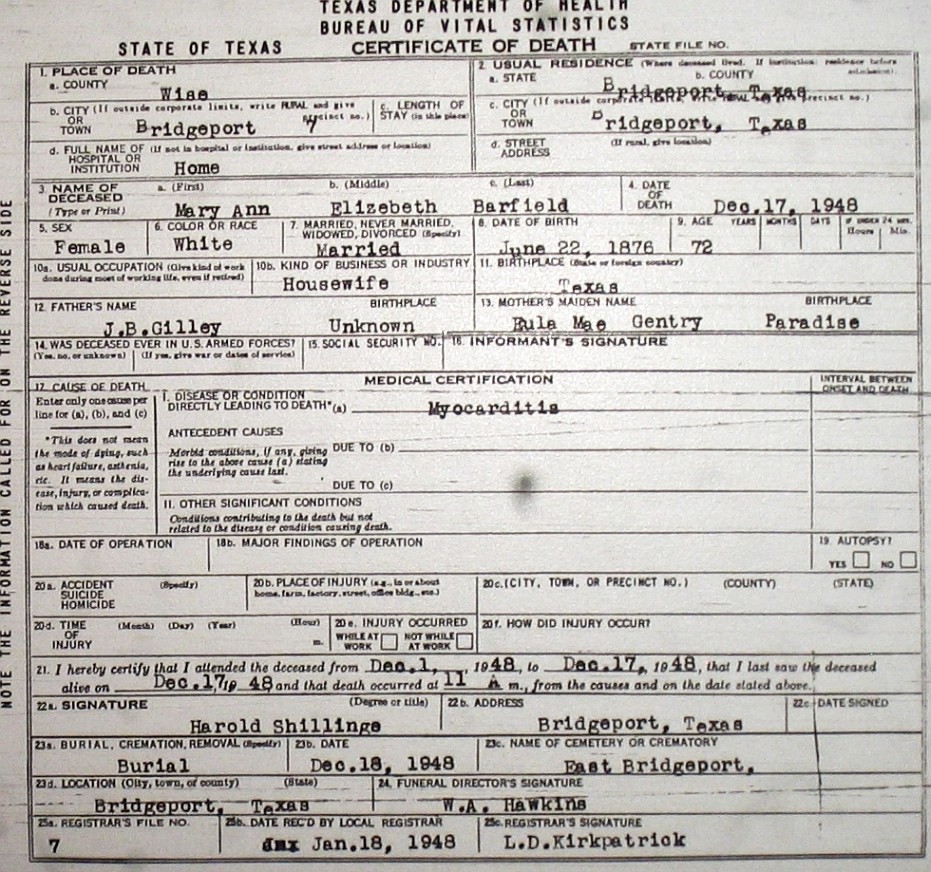 TEXAS DEPARTMENT OF HEALTH
BUREAU OF VITAL STATISTICS
STATE OF TEXAS CERTIFICATE OF DEATH STATE FILE NO.
1. PLACE OF DEATH
a. COUNTY Wise
2. USUAL RESIDENCE (Where deceased lived. If institution: residence before admission).
a. STATE b. COUNTY
Bridgeport, Texas
b. CITY (If outside corporate limits, write RURAL and give precinct no.)
OR
TOWN Bridgeport 7
c. LENGTH OF
STAY (in this place)
c. CITY (If outside corporate limits, write RURAL and give precinct no.)
OR
TOWN Bridgeport, Texas
d. FULL NAME OF (If not in hospital or institution, give street address or location)
HOSPITAL OR
INSTITUTION Home
d. STREET (If rural, give location)
ADDRESS
3. NAME OF DECEASED
(Type or Print)
a. (First) b. (Middle) c. (Last)
Mary Ann Elizebeth Barfield
4. DATE
OF
DEATH Dec.17, 1948
5. SEX
Female
6. COLOR OR RACE
White
7. MARRIED, NEVER MARRIED,
WIDOWED, DIVORCED (Specify)
Married
8. DATE OF BIRTH
June 22, 1876
9. AGE YEARS MONTHS DAYS IF UNDER 24 HRS.
Hours Min.
72
10a. USUAL OCCUPATION (Give kind of work
done during most of working life, even if retired)
10b. KIND OF BUSINESS OR INDUSTRY
Housewife
11. BIRTHPLACE (State or foreign country)
Texas
12. FATHER'S NAME BIRTHPLACE
J.B.Gilley Unknown
13. MOTHER'S MAIDEN NAME BIRTHPLACE
Eula Mae Gentry Paradise
14. WAS DECEASED EVER IN U.S. ARMED FORCES?
(Yes, no, or unknown) (If yes, give war or dates of service)
15. SOCIAL SECURITY NO.
16. INFORMANT'S SIGNATURE
17. CAUSE OF DEATH
Enter only one cause per
line for (a), (b), and (c)
*This does not mean
the mode of dying, such
as heart failure, asthenia,
etc. It means the dis-
ease, injury, or complica-
tion which caused death.
MEDICAL CERTIFICATION
INTERVAL BETWEEN
ONSET AND DEATH
I. DISEASE OR CONDITION
DIRECTLY LEADING TO DEATH*(a) Myocarditis
ANTECEDENT CAUSES
Morbid conditions, if any, giving
rise to the above cause (a) stating
the underlying cause last.
DUE TO (b)
DUE TO (c)
II. OTHER SIGNIFICANT CONDITIONS
Conditions contributing to the death but not
related to the disease or condition causing death.
18a. DATE OF OPERATION
18b. MAJOR FINDINGS OF OPERATION
19. AUTOPSY?
YES NO
20a. ACCIDENT (Specify)
SUICIDE
HOMICIDE
20b. PLACE OF INJURY (e.g., in or about
home, farm, factory, street, office bldg., etc.)
20c. (CITY, TOWN, OR PRECINCT NO.) (COUNTY) (STATE)
20d. TIME (Month) (Day) (Year) (Hour)
OF
INJURY m.
20e. INJURY OCCURRED
WHILE AT WORK NOT WHILE AT WORK
20f. HOW DID INJURY OCCUR?
21. I hereby certify that I attended the deceased from Dec.1, 1948, to Dec.17, 1948, that I last saw the deceased
alive on Dec.17, 19 48 and that death occurred at 11 A m., from the causes and on the date stated above.
22a. SIGNATURE (Degree or title)
Harold Shillings
22b. ADDRESS
Bridgeport, Texas
22c. DATE SIGNED
23a. BURIAL, CREMATION, REMOVAL (Specify)
Burial
23b. DATE
Dec.18, 1948
23c. NAME OF CEMETERY OR CREMATORY
East Bridgeport,
23d. LOCATION (City, town, of county) (State)
Bridgeport, Texas
24. FUNERAL DIRECTOR'S SIGNATURE
W.A. Hawkins
25a. REGISTRAR'S FILE NO.
7
25b. DATE REC'D BY LOCAL REGISTRAR
Jan.18, 1948
25c. REGISTRAR'S SIGNATURE
L.D.Kirkpatrick
NOTE THE INFORMATION CALLED FOR ON THE REVERSE SIDE